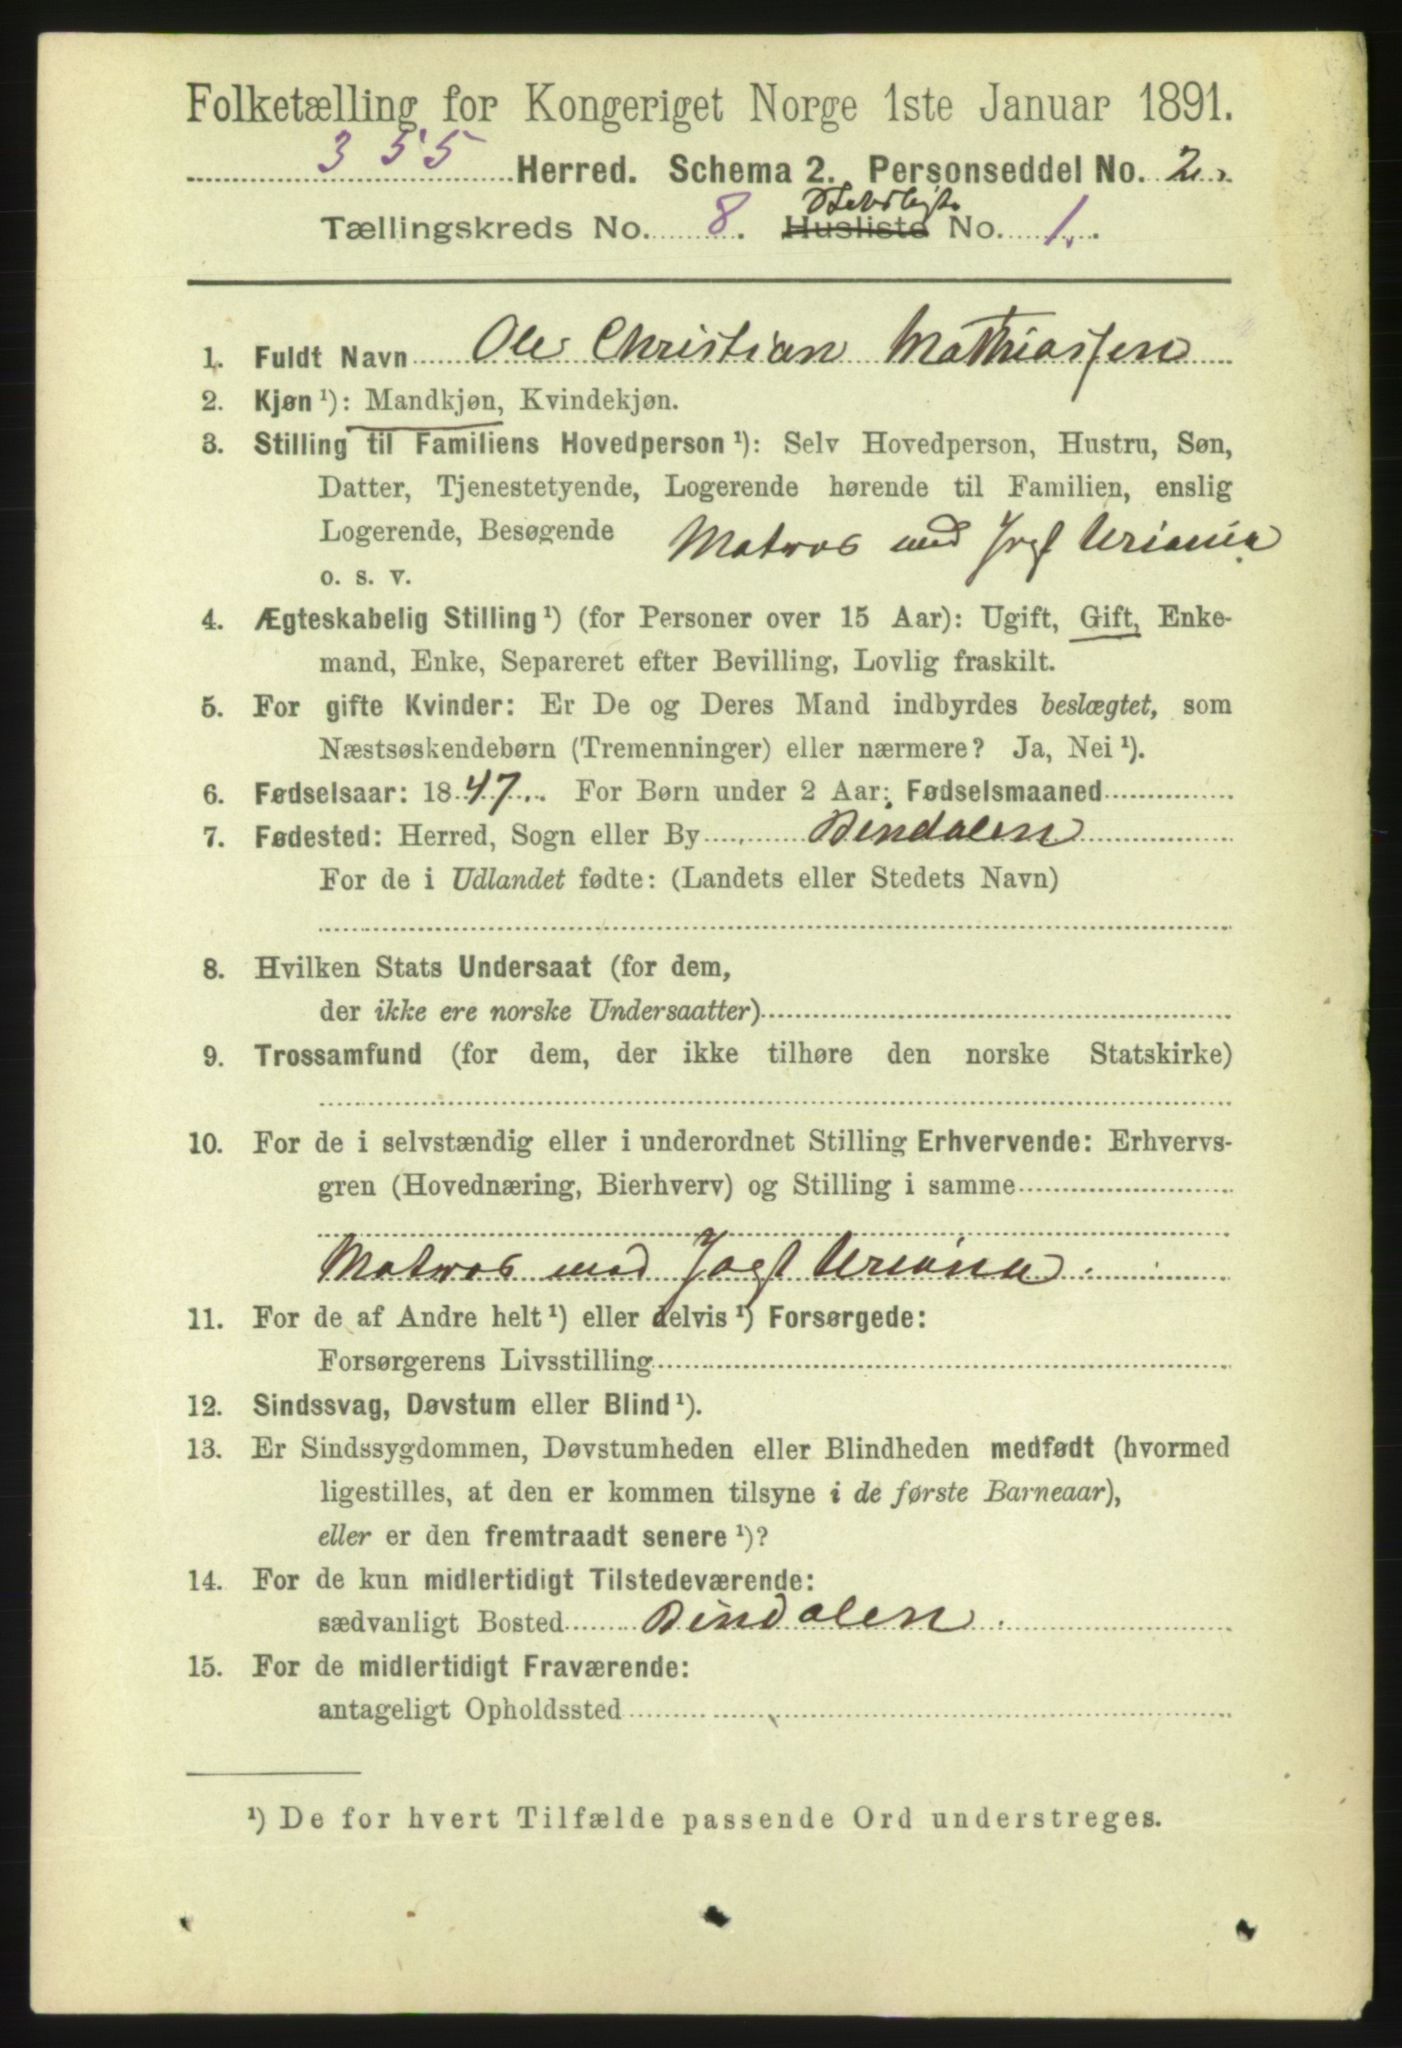 Folketælling for Kongeriget Norge 1ste Januar 1891.
355 Herred. Schema 2. Personseddel No. 2.
Tællingskreds No. 8. Husliste No. 1.
1. Fuldt Navn Ole Christian Mathiassen
2. Kjøn ¹): Mandkjøn, Kvindekjøn.
3. Stilling til Familiens Hovedperson ¹): Selv Hovedperson, Hustru, Søn,
Datter, Tjenestetyende, Logerende hørende til Familien, enslig
Logerende, Besøgende Matros med Jagt Uriania
o. s. v.
4. Ægteskabelig Stilling ¹) (for Personer over 15 Aar): Ugift, Gift, Enke-
mand, Enke, Separeret efter Bevilling, Lovlig fraskilt.
5. For gifte Kvinder: Er De og Deres Mand indbyrdes beslægtet, som
Næstsøskendebørn (Tremenninger) eller nærmere? Ja, Nei ¹).
6. Fødselsaar: 1847. For Børn under 2 Aar: Fødselsmaaned
7. Fødested: Herred, Sogn eller By Bindalen
For de i Udlandet fødte: (Landets eller Stedets Navn)
8. Hvilken Stats Undersaat (for dem,
der ikke ere norske Undersaatter)
9. Trossamfund (for dem, der ikke tilhøre den norske Statskirke)
10. For de i selvstændig eller i underordnet Stilling Erhvervende: Erhvervs-
gren (Hovednæring, Bierhverv) og Stilling i samme
Matros med Jagt Uriania.
11. For de af Andre helt ¹) eller delvis ¹) Forsørgede:
Forsørgerens Livsstilling
12. Sindssvag, Døvstum eller Blind ¹).
13. Er Sindssygdommen, Døvstumheden eller Blindheden medfødt (hvormed
ligestilles, at den er kommen tilsyne i de første Barneaar),
eller er den fremtraadt senere ¹)?
14. For de kun midlertidigt Tilstedeværende:
sædvanligt Bosted Bindalen.
15. For de midlertidigt Fraværende:
antageligt Opholdssted
¹) De for hvert Tilfælde passende Ord understreges.